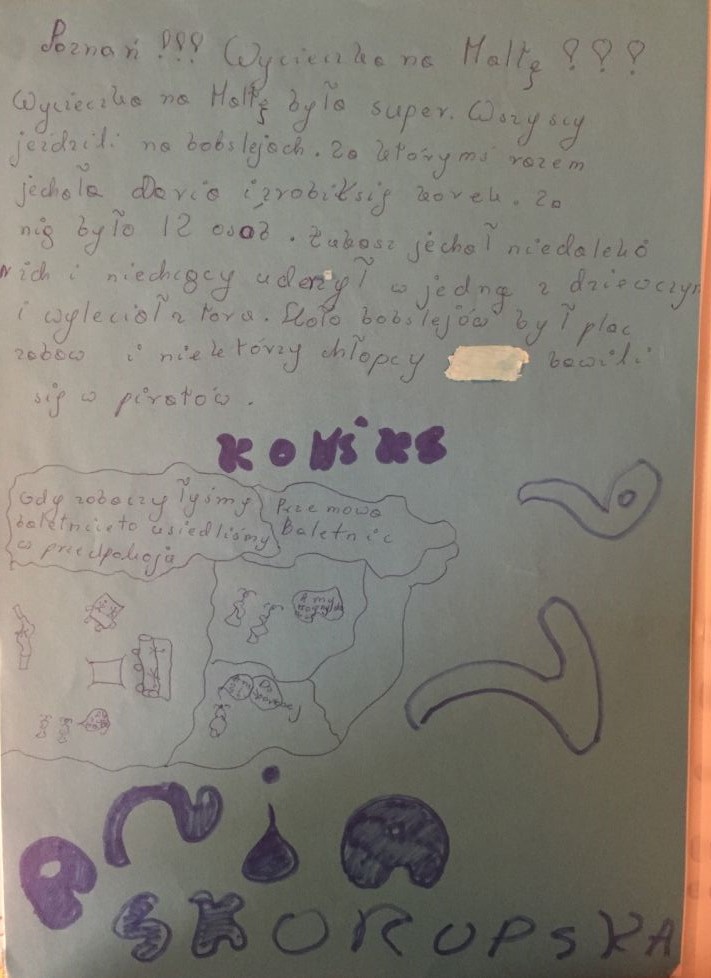 Poznań !!! Wycieczka na Maltę ???
Wycieczka na Maltę była super. Wszyscy
jeździli na bobslejach. Za którymś razem
jechała Daria i zrobił się korek. Za
nią było 12 osob. Łukasz jechał niedalekó
nich i niechcący uderzył w jedną z dziewczyn
i wyleciał z toru. Koło bobslejów był plac
zabaw i niektórzy chłopcy bawili
się w piratów.
KOMiKS
Gdy zobaczyłyśmy
baletnice to usiedliśmy
w przedpokoju
Przemowa
Baletnic
A my
Do
SKORUPSKA